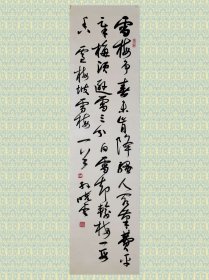 雪梅争春未肯降骚人阁笔费评
章梅须逊雪三分白雪却输梅一段
香 卢梅坡雪梅一首 孙晓云